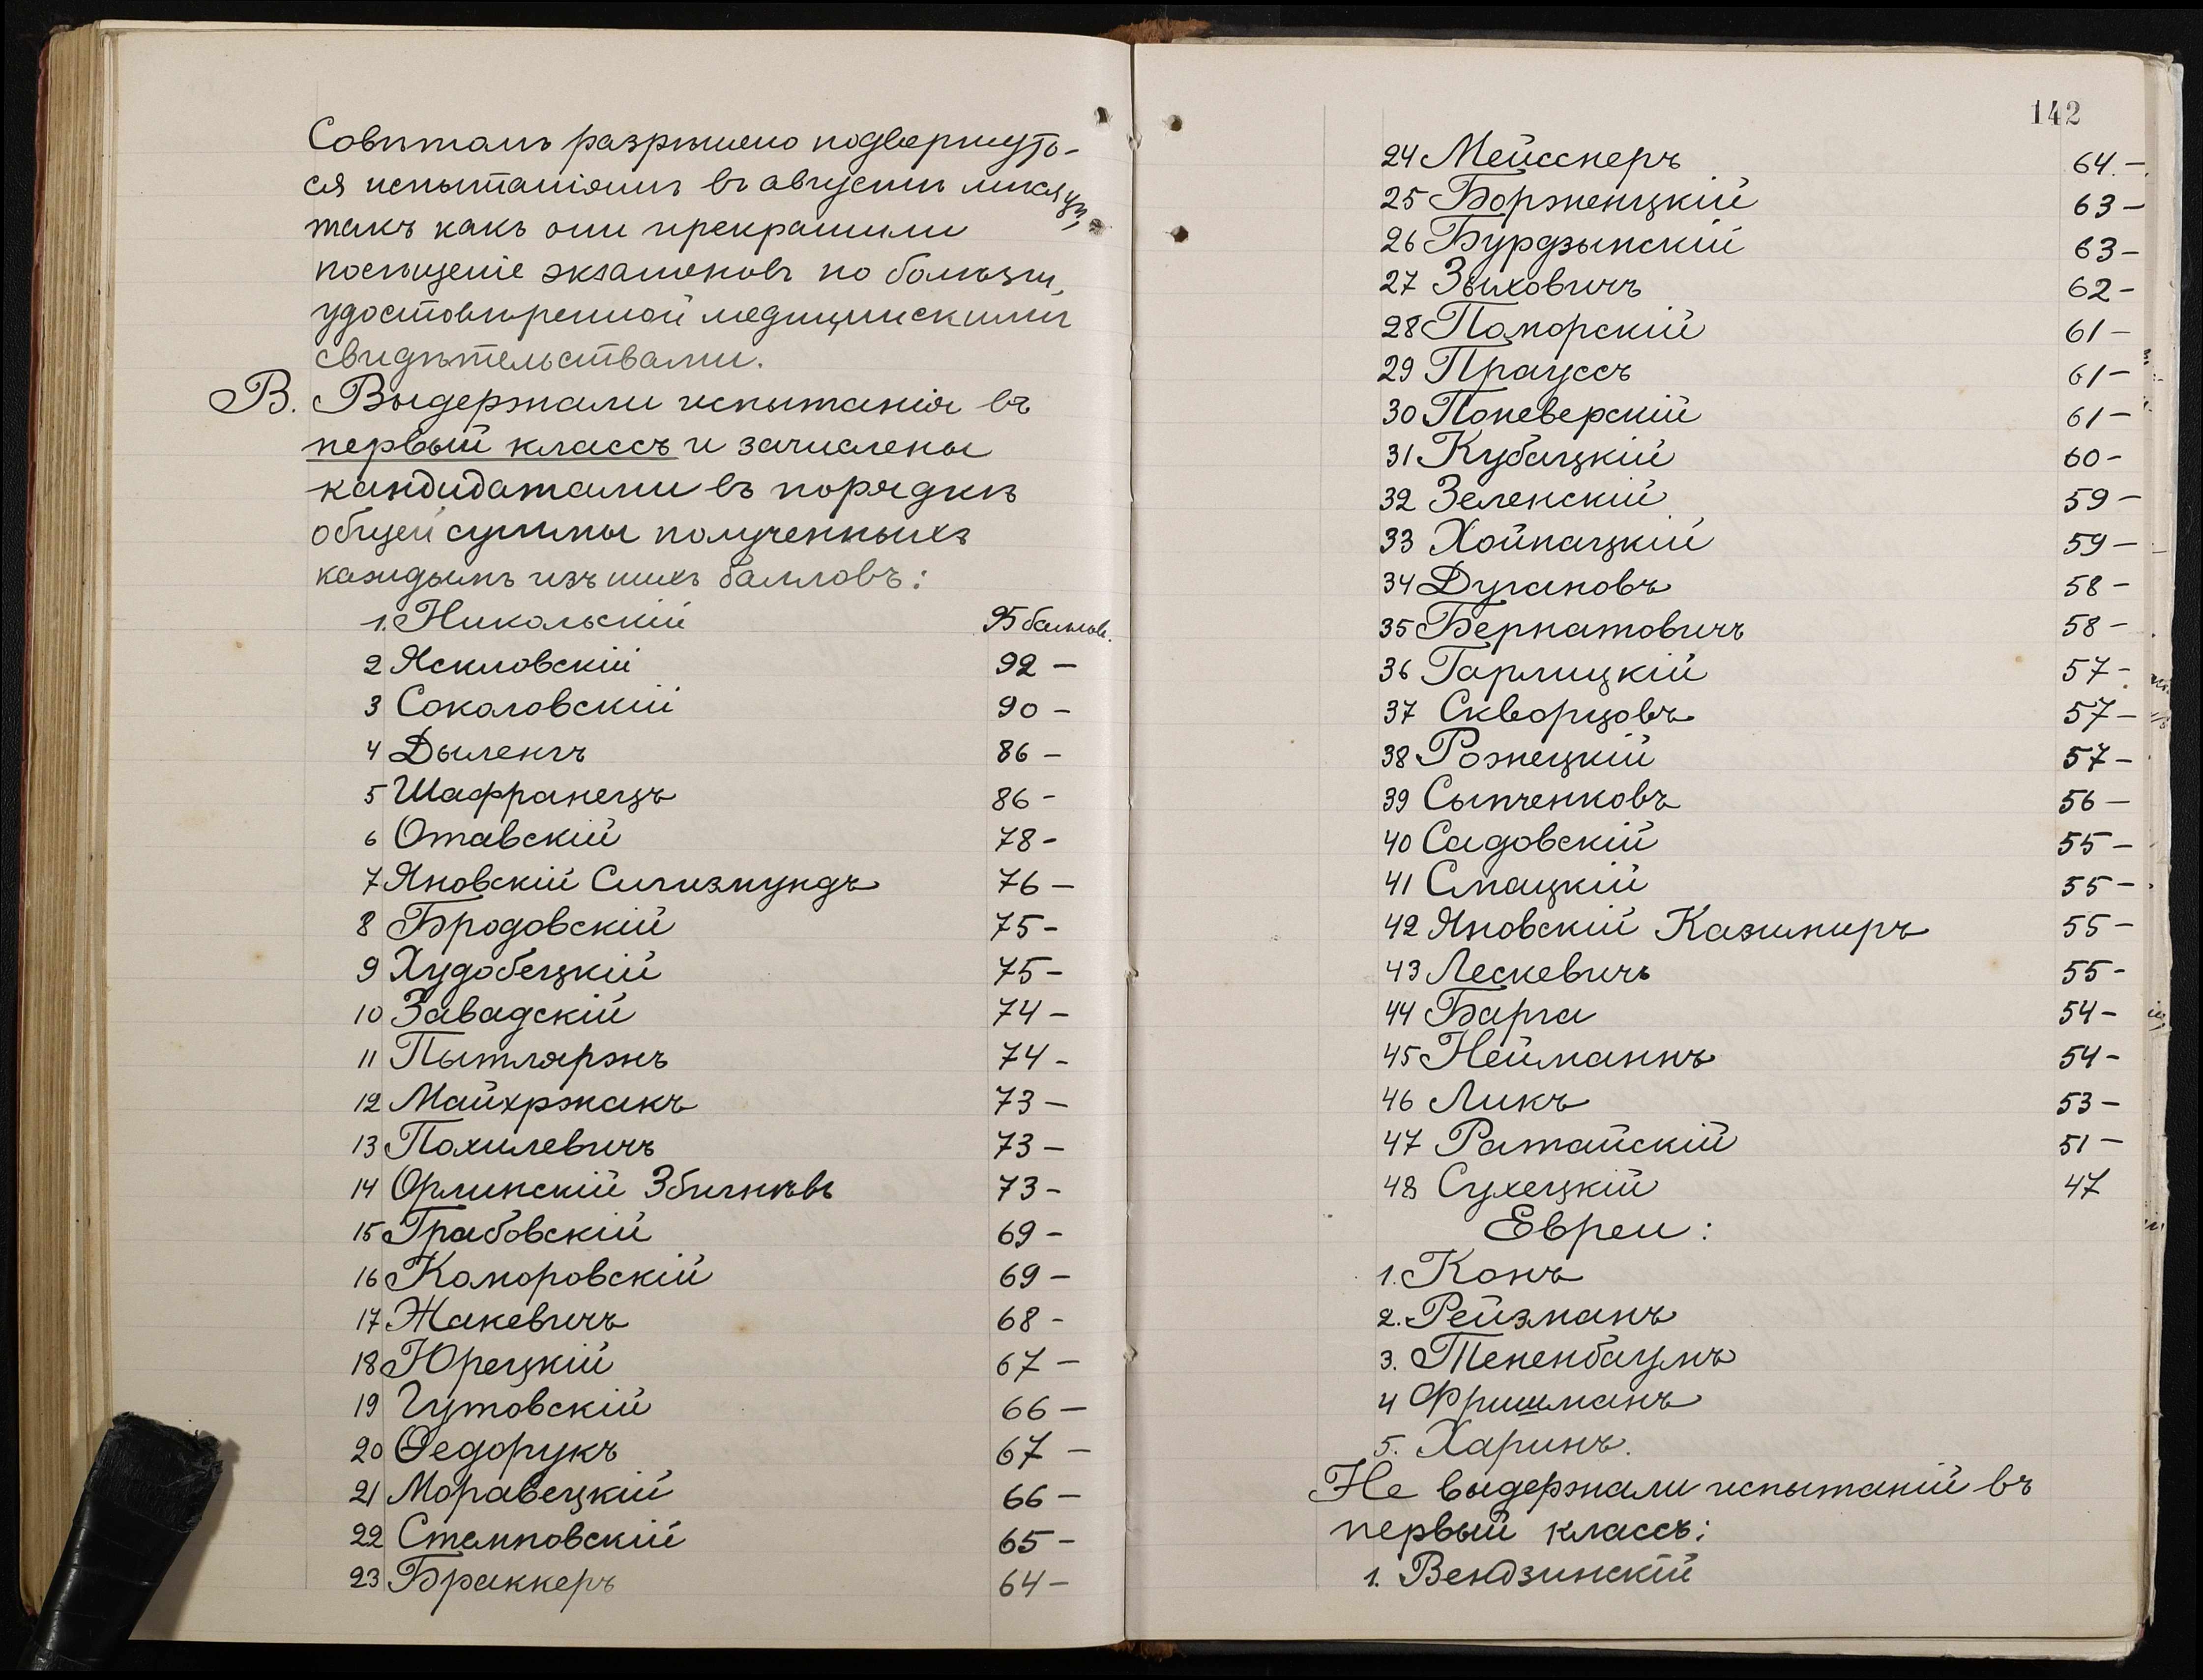 Совѣтомъ разрѣшено подвергнуть-
ся испытаніямъ въ августѣ мѣсяцѣ,
такъ какъ они прекратили
посѣщеніе экзаменовъ по болѣзни,
удостовѣренной медицинскими
свидѣтельствами.
В. Выдержали испытанія въ
первый классъ и зачислены
кандидатами въ порядкѣ
общей суммы полученныхъ
каждымъ изъ нихъ балловъ:
1. Никольскій 95 баллов.
2 Яскловскій 92 —
3 Соколовскій 90 —
4 Дыленгъ 86 —
5 Шафранецъ 86 -
6 Отавскій 78 -
7 Яновскій Сигизмундъ 76 —
8 Бродовскій 75 -
9 Худобецкій 75 -
10 Завадскій 74 —
11 Пытляржъ 74 -
12 Майхржакъ 73 —
13 Похилевичъ 73 —
14 Орлинскій Збигнѣвъ 73 -
15 Грабовскій 69 -
16 Коморовскій 69 —
17 Жакевичъ 68 -
18 Юрецкій 67 —
19 Гутовскій 66 —
20 Ѳедорукъ 67 —
21 Моравецкій 66 —
22 Стемповскій 65 —
23 Браккеръ 64 —
142
24 Мейсснеръ 64. —
25 Борженцкій 63 —
26 Бурдзынскій 63 —
27 Зыховичъ 62 -
28 Поморскій 61 —
29 Прауссъ 61 —
30 Поневерскій 61 —
31 Кубацкій 60 -
32 Зеленскій 59 —
33 Хойнацкій 59 —
34 Дугановъ 58 -
35 Бернатовичъ 58 -
36 Гарлицкій 57 -
37 Скворцовъ 57 —
38 Рожецкій 57 —
39 Сыпченковъ 56 —
40 Садовскій 55 —
41 Смацкій 55 —
42 Яновскій Казимиръ 55 —
43 Лескевичъ 55 -
44 Барга 54 -
45 Нейманнъ 54 -
46 Ликъ 53 —
47 Ратайскій 51 —
48 Сухецкій 47
Евреи:
1. Конъ
2. Рейзманъ
3. Тененбаумъ
4 Фришманъ
5. Харинъ.
Не выдержали испытаній въ
первый классъ:
1. Вендзинскій